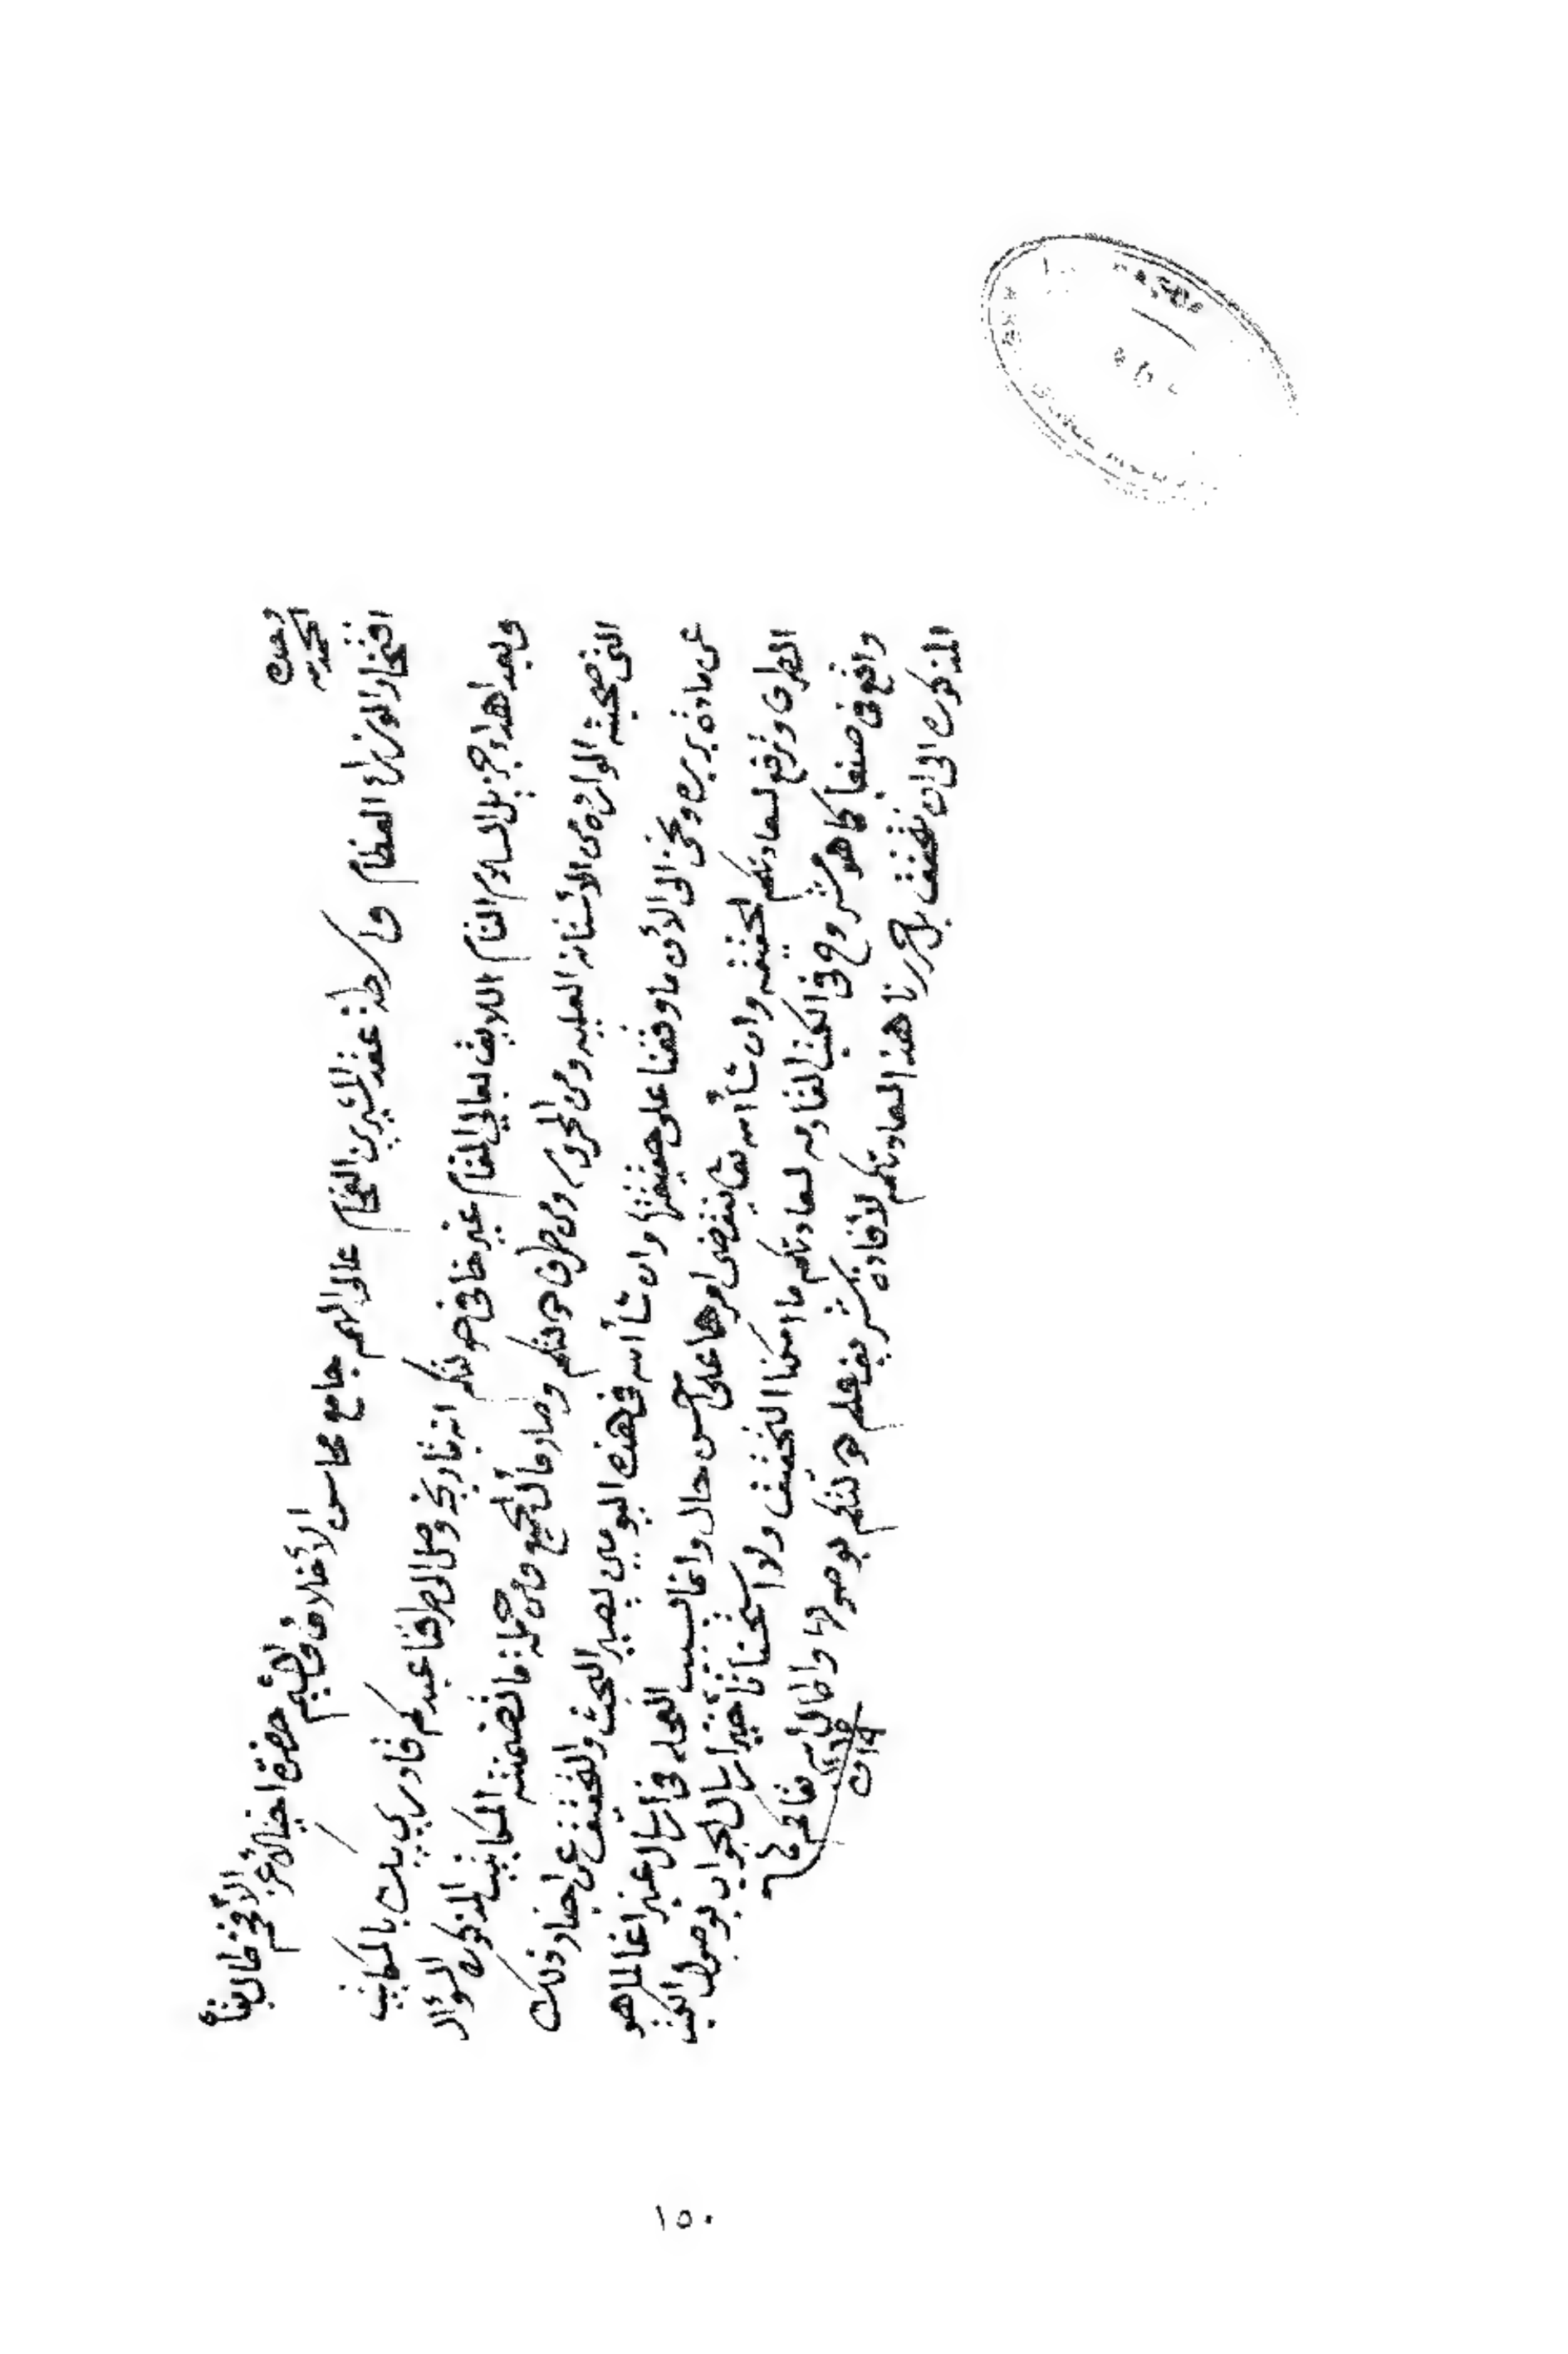 الحمد لله
وحده
افتخار الوزراء العظام واسطة عقد المشيرين الفخام عالي الهمم جامع محاسن الأخلاق والشيم حضرة اخينا الأعز الأفخم طال بقاه
وبعد اهداء جزيل السلام التام اللايق بعالي المقام غير خافي دولتكم انه بتاريخه وصل الى طرفنا عبدكم قادري بيك بالمكاتيب
التي صحبته الواردة من الأستانة العليه ومن المحروسه ومن طرف دولتكم وصار مآل الجميع ومن جملة ما تضمنته المكاتيب المذكورة السؤال
عن مادة بريره ونحن الى الأن ما وقفنا على حقيقتها وان شا الله في هذه اليومين يصير البحث والتحقيق عن اخبار ذلك
الطرف ونرفع لسعادتكم الحقيقه وان شا الله تعالى ينقضي امرها على احسن حال وانما لسبب العجله في ارسال عنبر اغا لما هو
واقع في صنعا كما هو مشروح في الكتب القادمه لسعادتكم ما امكنا التحقيق ولا استحسنا تأخير ارسال الجواب بوصول الكتب
المذكورة الى ان نتحقق بل حررنا هذا لسعادتكم لأفادة شريف علم دولتكم بوصولها واطال الله بقاكم
١٥٠